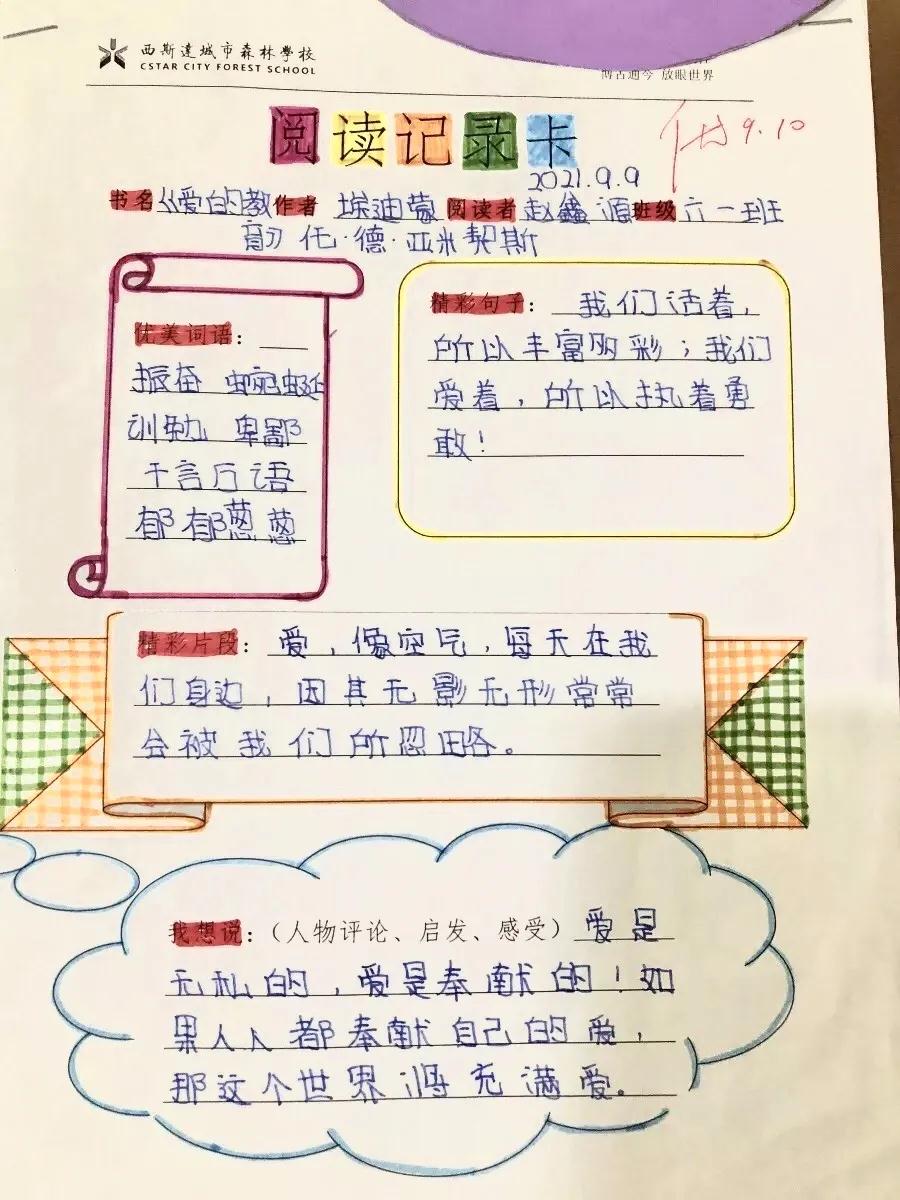 西斯達城市森林學校
CSTAR CITY FOREST SCHOOL
博古通今 放眼世界
阅读记录卡
优 9.10
2021.9.9
书名《爱的教 作者 埃迪蒙 阅读者 赵鑫源 班级 六一班
育》 托·德·亚米契斯
优美词语：
振奋 蜿蜒
训勉 卑鄙
千言万语
郁郁葱葱
精彩句子： 我们活着，
所以丰富多彩；我们
爱着，所以执着勇
敢！
精彩片段： 爱，像空气，每天在我
们身边，因其无影无形常常
会被我们所忽略。
我想说：（人物评论、启发、感受） 爱是
无私的，爱是奉献的！如
果人人都奉献自己的爱，
那这个世界将充满爱。